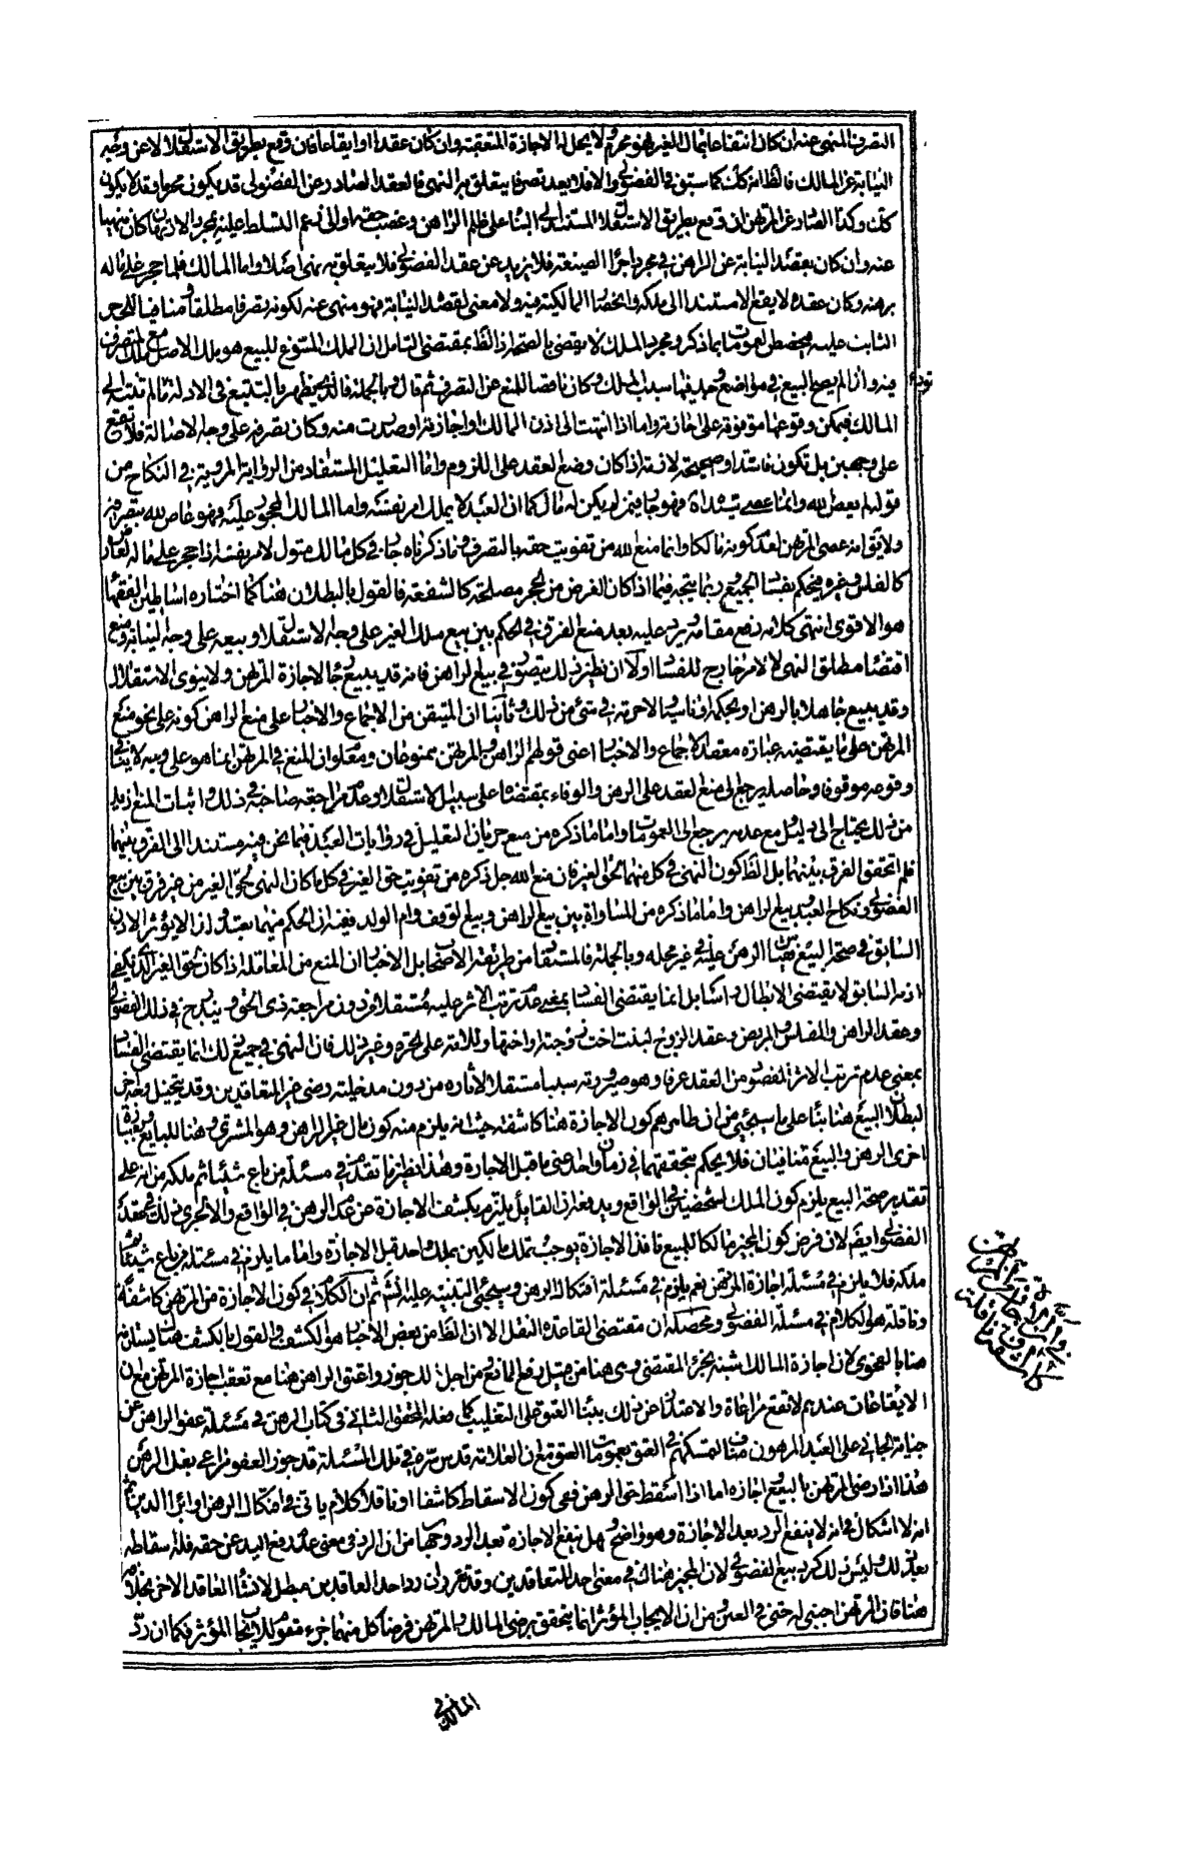 التصرف المنهى عنه ان كان انتفاعا بمال الغير فهو محرم لا يحل له الاجازة المتعقبة وان كان عقدا او ايقاعا فان وقع بطريق الاستقلال لا عن وجه
النيابة عن المالك فالظ انه كك كما سبق فى الفضولى والا فلا يعد تصرفا يتعلق به النهى فالعقد الصادر عن الفضولى قد يكون محرما وقد لا يكون
كك وكذا الصادر عن المرتهن ان وقع بطريق الاستقلال المستند الى البناء على ظلم الراهن وغصب حقه او الى زعم التسلط عليه بمجرد الارتهان كان منهيا
عنه وان كان بقصد النيابة عن الراهن فى مجرد اجراء الصيغة فلا يزيد عن عقد الفضولى فلا يتعلق به نهى اصلا واما المالك فلما حجر على ماله
برهنه وكان عقده لا يقع الا مستندا الى ملكه وانحصار المالكية فيه ولا معنى لقصد النيابة فهو منهى عنه لكونه تصرفا مطلقا ومنافيا للحجر
الثابت عليه فيخصص العمومات بما ذكر ومجرد الملك لا يقضى بالصحة اذ الظ بمقتضى التامل ان الملك المسوغ للبيع هو ملك الاصل مع ملك التصرف
فيه ولذا لم يصح البيع فى مواضع وجد فيها سبب الملك وكان ناقصا للمنع عن التصرف ثم قال وبالجملة فالذى يظهر بالتتبع فى الادلة ما لم تنته الى
المالك فيمكن وقوعها موقوفة على اجازته واما اذا انتهت الى اذن المالك او اجازته او صدرت منه وكان تصرفه على وجه الاصالة فلا تقع
على وجهين بل تكون فاسدة او صحيحة لازمة اذا كان وضع العقد على اللزوم واما التعليل المستفاد من الرواية المروية فى النكاح من
قوله لم يعص الله وانما عصى سيده اه فهو جار فيمن لم يكن له مال كما ان العبد لا يملك امر نفسه واما المالك المحجور عليه فهو عاص لله بتصرفه
ولا يق انه عصى المرتهن لعدم كونه مالكا وانما منع الله من تفويت حقه بالتصرف وما ذكرناه جار فى كل مالك متول لامر نفسه اذا حجر على ماله لعارض
كالفلس وغيره فيحكم بفساد الجميع وربما يتجه فيما اذا كان الغرض من الحجر مصلحته كالشفعة فالقول بالبطلان هنا كما اختاره اساطين الفقهاء
هو الاقوى انتهى كلامه رفع مقامه ويرد عليه بعد منع الفرق فى الحكم بين بيع ملك الغير على وجه الاستقلال وبيعه على وجه النيابة ومنع
اقتضاء مطلق النهى لا لامر خارج للفساد اولا ان نظير ذلك يتصور فى بيع الراهن فانه قد يبيع رجاء لاجازة المرتهن ولا ينوى الاستقلال
وقد يبيع جاهلا بالرهن او بحكمه او ناسيا ولا حرمة فى شئ من ذلك وثانيا ان المتيقن من الاجماع والاخبار على منع الراهن كونه على نحو منع
المرتهن على ما يقتضيه عبارة معقد الاجماع والاخبار اعنى قولهم الراهن والمرتهن ممنوعان ومعلوم ان المنع فى المرتهن انما هو على وجه لا ينافى
وقوعه موقوفا وحاصله يرجع الى منع العقد على الرهن والوفاء بمقتضاه على سبيل الاستقلال وعدم مراجعة صاحبه فى ذلك واثبات المنع ازيد
من ذلك يحتاج الى دليل مع عدمه يرجع الى العمومات واما ما ذكره من منع جريان التعليل فى روايات العبد فيما نحن فيه مستندا الى الفرق بينهما
فلم اتحقق الفرق بينهما بل الظ كون النهى فى كل منهما لحق الغير فان منع الله جل ذكره من تفويت حق الغير فى كل ما كان النهى لحق الغير من غير فرق بين بيع
الفضولى ونكاح العبد وبيع الراهن واما ما ذكره من المساواة بين بيع الراهن وبيع الوقف وام الولد ففيه ان الحكم فيهما تعبد ولذا لا يؤثر الاذن
السابق فى صحة البيع فقياس الرهن عليه فى غير محله وبالجملة فالمستفاد من طريقة الاصحاب بل الاخبار ان المنع من المعاملة اذا كان لحق الغير الذى يكفى
اذنه السابق لا يقتضى الابطال راسا بل انما يقتضى الفساد بمعنى عدم ترتب الاثر عليه مستقلا من دون مراجعة ذى الحق ويندرج فى ذلك الفضولى
وعقد الراهن والمفلس والمريض وعقد الزوج لبنت اخت زوجته او اخيها وللامة على الحرة وغير ذلك فان النهى فى جميع ذلك انما يقتضى الفساد
بمعنى عدم ترتب الاثر المقصود من العقد عرفا وهو صيرورته سببا مستقلا لاثاره من دون مدخلية رضى غير المتعاقدين وقد يتخيل وجه اخر
لبطلان البيع هنا بناء على ما سيجئ من ان ظاهرهم كون الاجازة هنا كاشفة حيث انه يلزم منه كون مال غير الراهن وهو المشترى رهنا للبايع وبعبارة
اخرى الرهن والبيع متنافيان فلا يحكم بتحققهما فى زمان واحد اعنى ما قبل الاجازة وهذا نظير ما تقدم فى مسئلة من باع شيئا ثم ملكه من انه على
تقدير صحة البيع يلزم كون الملك لشخصين فى الواقع ويدفعه ان القائل يلتزم بكشف الاجازة عن عدم الرهن فى الواقع والا لجرى ذلك فى عقد
الفضولى ايضا لان فرض كون المجيز مالكا للمبيع نافذ الاجازة يوجب تملك مالكين لملك واحد قبل الاجازة واما ما يلزم فى مسئلة من باع شيئا ثم
ملكه فلا يلزم فى مسئلة اجازة المرتهن نعم يلزم فى مسئلة افتكاك الرهن وسيجئ التنبيه عليه انش ثم ان الكلام فى كون الاجازة من المرتهن كاشفة
وناقلة هو الكلام فى مسئلة الفضولى ومحصله ان مقتضى القاعدة النقل الا ان الظ من بعض الاخبار هو الكشف والقول بالكشف هناك يستلزمه
هنا بالفحوى لان اجازة المالك اشبه بجزء المقتضى وهى هنا من قبيل رفع المانع ومن اجل ذلك جوزوا عتق الراهن هنا مع تعقب اجازة المرتهن مع ان
الايقاعات عندهم لا تقع مراعاة والاعتذار عن ذلك ببناء العتق على التغليب كما فعله المحقق الثانى فى كتاب الرهن فى مسئلة عفو الراهن عن
جناية الجانى على العبد المرهون مناف لتمسكهم فى العتق بعمومات العتق مع ان العلامة قدس سره فى تلك المسئلة قد جوز العفو مراعى بفك الرهن
هذا اذا رضى المرتهن بالبيع واجازه اما اذا اسقط حق الرهن ففى كون الاسقاط كاشفا او ناقلا كلام ياتى فى افتكاك الرهن او ابراء الدين ثم
انه لا اشكال فى انه لا ينفع الرد بعد الاجازة وهو واضح وهل ينفع الاجازة بعد الرد وجهان من ان الرد فى معنى عدم رفع اليد عن حقه فله اسقاطه
بعد ذلك وليس ذلك كرد بيع الفضولى لان المجيز هناك فى معنى احد المتعاقدين وقد تقرر ان رد احد العاقدين مبطل لانشاء العاقد الاخر بخلافه
هنا فان المرتهن اجنبى له حق فى العين ومن ان الايجاب المؤثر انما يتحقق برضى المالك والمرتهن فرضا كل منهما جزء مقوم للايجاب المؤثر فكما ان رد
المالك فى